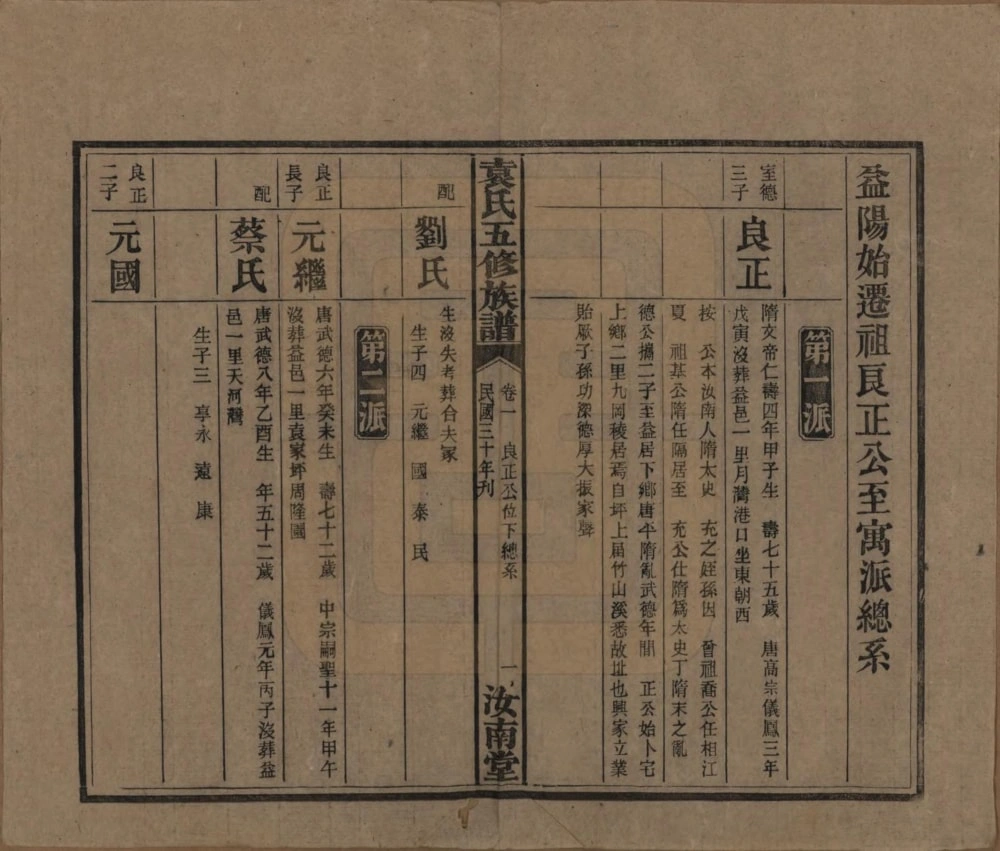 益陽始遷祖良正公至寓派總系
第一派
室德
三子
良正
隋文帝仁壽四年甲子生　壽七十五歲　唐高宗儀鳳三年
戊寅沒葬益邑一里月灣港口坐東朝西
按　公本汝南人隋太史　充之姪孫因　曾祖喬公任相江
夏　祖基公隋任隔居至　充公仕隋爲太史丁隋末之亂
德公攜二子至益居下鄉唐平隋亂武德年間　正公始卜宅
上鄉二里九岡稜居焉自坪上屆竹山溪悉故址也興家立業
貽厥子孫功深德厚大振家聲
袁氏五修族譜
卷一　良正公位下總系
民國三十年刊
一
汝南堂
配
劉氏
生沒失考葬合夫冢
生子四　元繼　國　泰　民
第二派
良正
長子
元繼
唐武德六年癸未生　壽七十二歲　中宗嗣聖十一年甲午
沒葬益邑一里袁家坪周隆園
配
蔡氏
唐武德八年乙酉生　年五十二歲　儀鳳元年丙子沒葬益
邑一里天河灣
生子三　享永　遠　康
良正
二子
元國